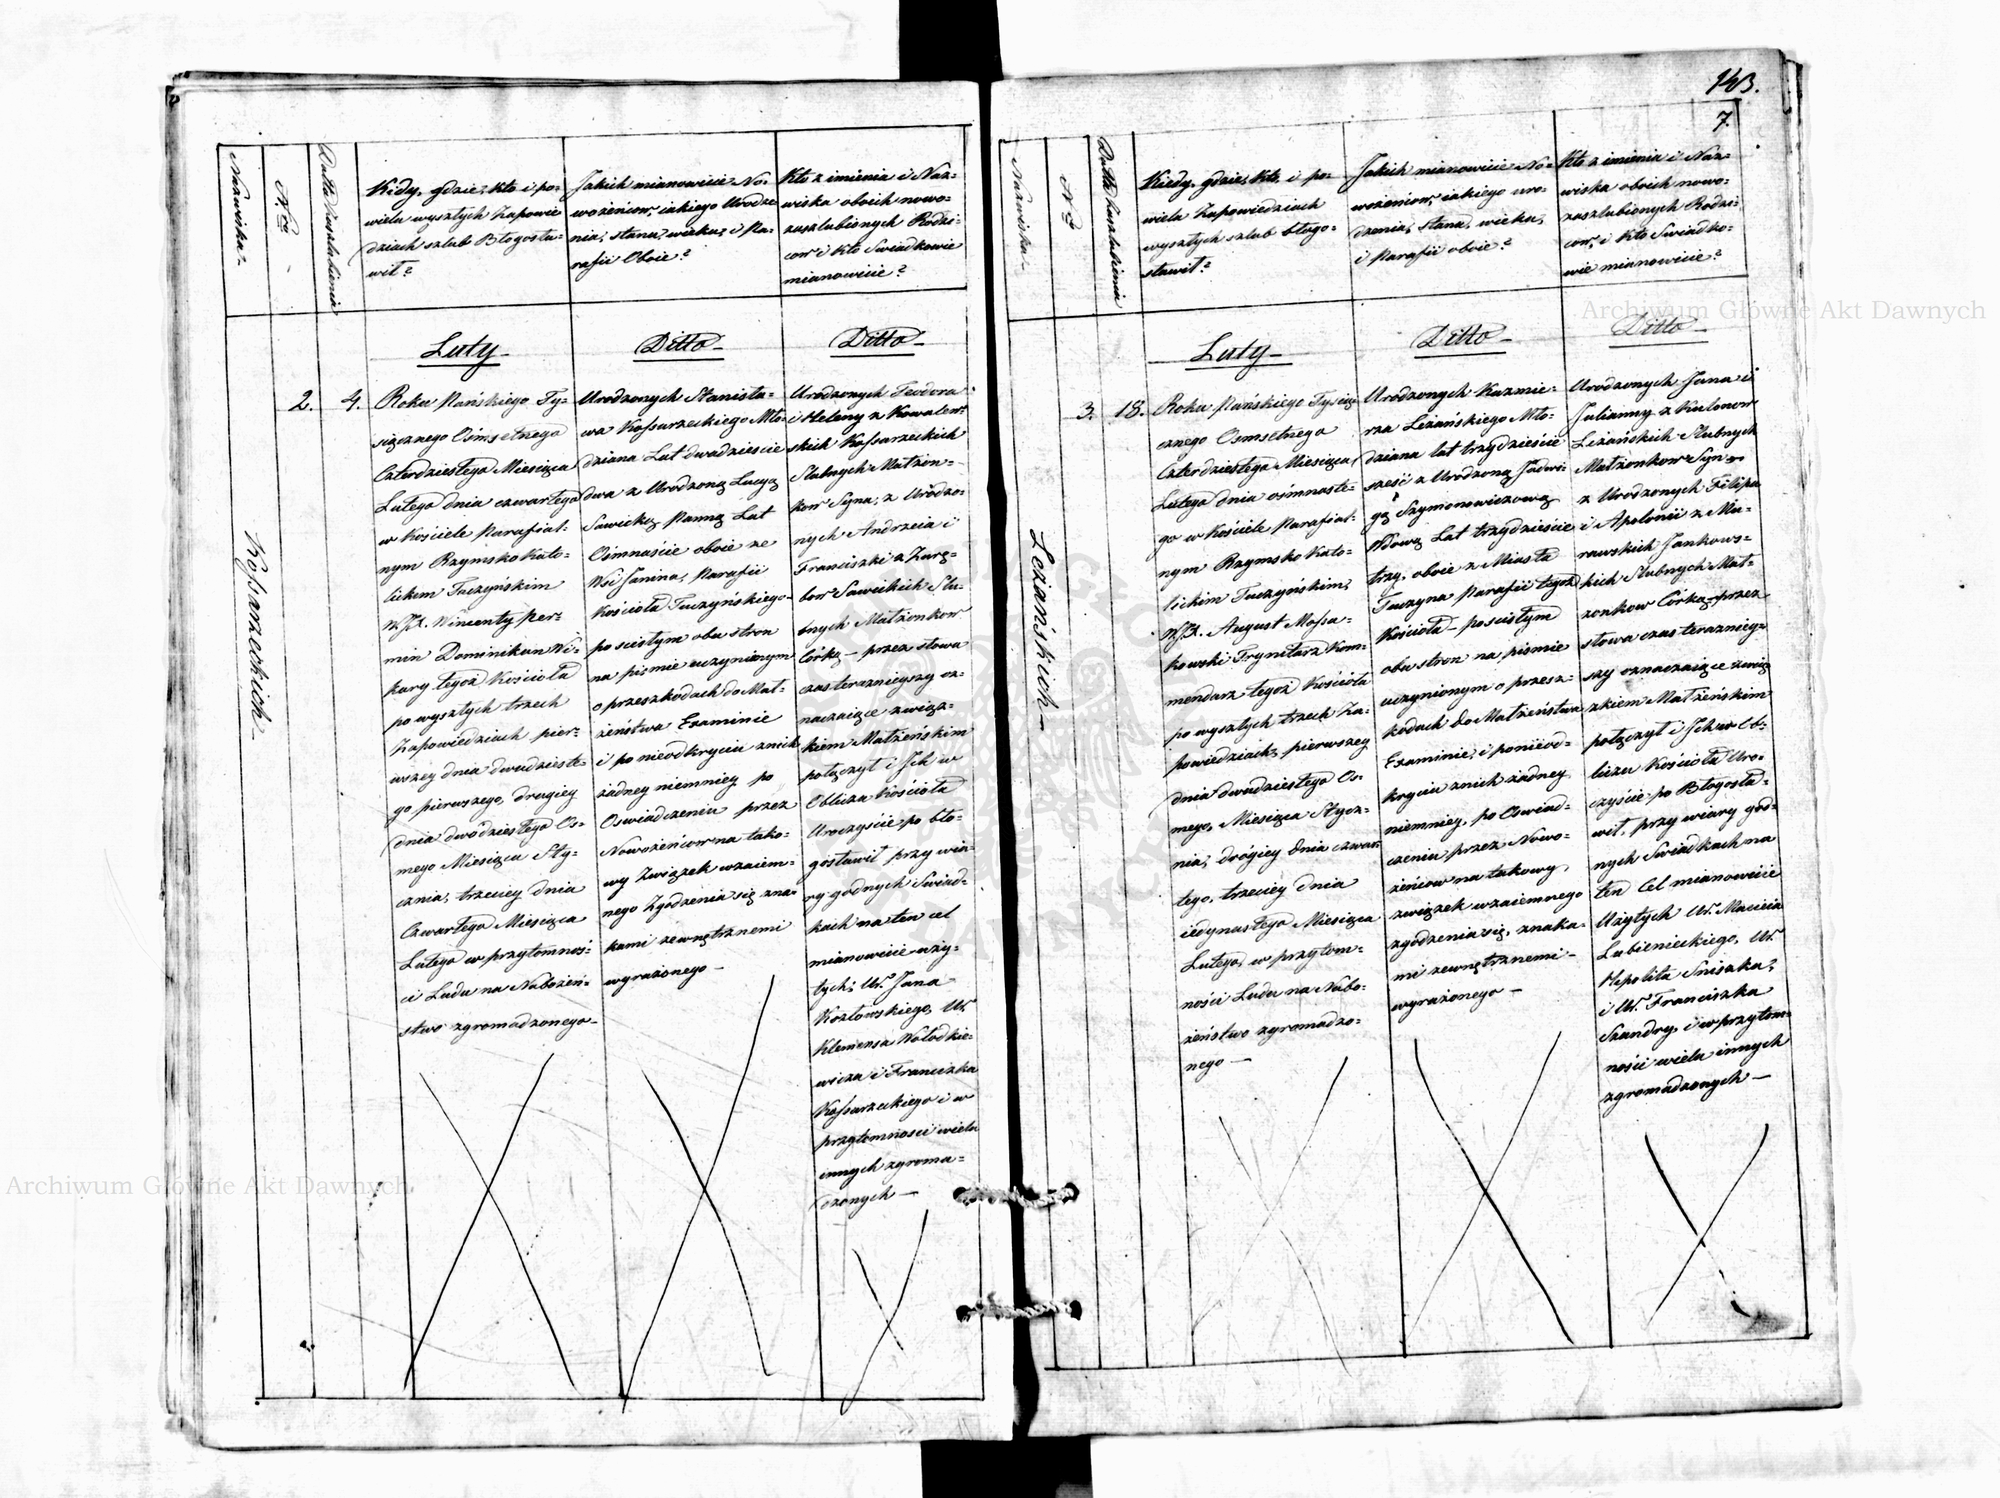 Nazwiska.
N.ro
Datta zaszlubienia
Kiedy, gdzie, kto i po=
wielu wyszłych Zapowie
dziach szlub Błogosła=
wił?
Jakich mianowicie No=
wożeńcow, iakiego Urodze
nia, stanu, wieku, i Pa=
rafii Oboie?
Kto z imienia i Naz=
wiska oboich nowo=
zaszlubionych Rodzi=
cow i Kto Swiadkowie
mianowicie?
Luty
Ditto
Ditto
Kossarzeckich
2. 4.
Roku Pańskiego Ty=
siącznego Ośmsetnego
Czterdziestego Miesiąca
Lutego dnia czwartego
w Kościele Parafial:
nym Rzymsko Kato=
lickim Tuczyńskim
W.JX. Wincenty Per=
min Dominikan Wi=
kary tegoż Kościoła
po wyszłych trzech
Zapowiedziach pier=
wszey dnia dwudzieste=
go pierwszego, drugiey
dnia dwódziestego Os=
mego Miesiąca Sty=
cznia, trzeciey dnia
Czwartego Miesiąca
Lutego w przytomnoś=
ci Ludu na Nabożeń=
stwo zgromadzonego
Urodzonych Stanisła=
wa Kossarzeckiego Mło=
dziana Lat dwadzieście
dwa z Urodzoną Lucyą
Sawicką Panną Lat
Ośmnaście oboie ze
Wsi Janina, Parafii
Kościoła Tuczyńskiego
po ścisłym obu stron
na piśmie uczynionym
o przeszkodach do Mał=
żeństwa Examinie
i po nieodkryciu znich
żadney niemniey po
Oswiadczeniu przez
Nowożeńcow na tako=
wy Związek wzaiem=
nego Zgodzenia się zna=
kami zewnętrznemi
wyrażonego
Urodzonych Teodora
i Heleny z Kowalew=
skich Kossarzeckich
Slubnych Małżon=
kow Syna, z Urodzo=
nych Andrzeia i
Franciszki z Zarę=
bow Sawickich Slu=
bnych Małżonkow
Córką – przez słowa
czas teraznieyszy oz=
naczaiące związ=
kiem Małżeńskim
połączył i Ich w
Obliczu Kościoła
Uroczyście po bło=
gosławił przy wia=
ry godnych Swiad=
kach na ten cel
mianowicie uży=
tych; Ur. Jana
Kozłowskiego, Ur.
Klemensa Wołodkie=
wicza i Franciszka
Kossarzeckiego i w
przytomności wielu
innych zgroma=
dzonych
143.
7.
Nazwiska
N.ro
Datta zaszlubienia
Kiedy, gdzie, kto, i po=
wielu Zapowiedziach
wyszłych szlub błogo=
sławił?
Jakich mianowicie No=
wożeńcow, iakiego uro=
dzenia, Stanu, wieku,
i Parafii oboie?
Kto z imienia i Naz=
wiska oboich nowo=
zaszlubionych Rodzi=
cow, i kto Swiadko=
wie mianowicie?
Luty
Ditto
Ditto
Leżańskich
3. 18.
Roku Pańskiego Tysią
cznego Osmsetnego
Czterdziestego Miesiąca
Lutego dnia ośmnaste=
go w Kościele Parafial=
nym Rzymsko Kato=
lickim Tuczyńskim,
W.JX. August Mossa=
kowski Trynitarz Kom=
mendarz tegoż Kościoła
po wyszłych trzech Za=
powiedziach, pierwszey
dnia dwudziestego Os=
mego, Miesiąca Stycz=
nia, drógiey dnia czwar
tego, trzeciey dnia
iedynastego Miesiąca
Lutego, w przytom=
ności Ludu na Nabo=
żeństwo zgromadzo=
nego
Urodzonych Kazmie=
rza Leżańskiego Mło=
dziana lat trzydzieście
sześć z Urodzoną Jadwi=
gą Szymonowiczową
Wdową Lat trzydzieście
trzy, oboie z Miasta
Tuczyna Parafii tegoż
Kościoła – po ścisłym
obu stron na piśmie
uczynionym o przesz=
kodach do Małżeństwa
Examinie, i po nieod=
kryciu znich żadney
niemniey, po Oswiad=
czeniu przez Nowo=
żeńcow na takowy
związek wzaiemnego
zgodzenia się, znaka=
mi zewnętrznemi
wyrażonego
Urodzonych Jana i
Julianny z Kulonow
Leżańskich Slubnych
Małżonkow Syna
z Urodzonych Filipa
i Apolonii z Mu=
rawskich Jankows=
kich Slubnych Mał=
żonkow Córką – przez
słowa czas terazniey=
szy oznaczaiące zwią
zkiem Małżeńskim
połączył i Ich w Ob=
liczu Kościoła Uro=
czyście po Błogosła=
wił, przy wiary god=
nych Swiadkach na
ten Cel mianowicie
Użytych Ur. Macieia
Lubienieckiego, Ur.
Hipolita Sniszka,
i Ur. Franciszka
Szandry, i w przytom=
ności wielu innych
zgromadzonych
Archiwum Główne Akt Dawnych
Archiwum Główne Akt Dawnych